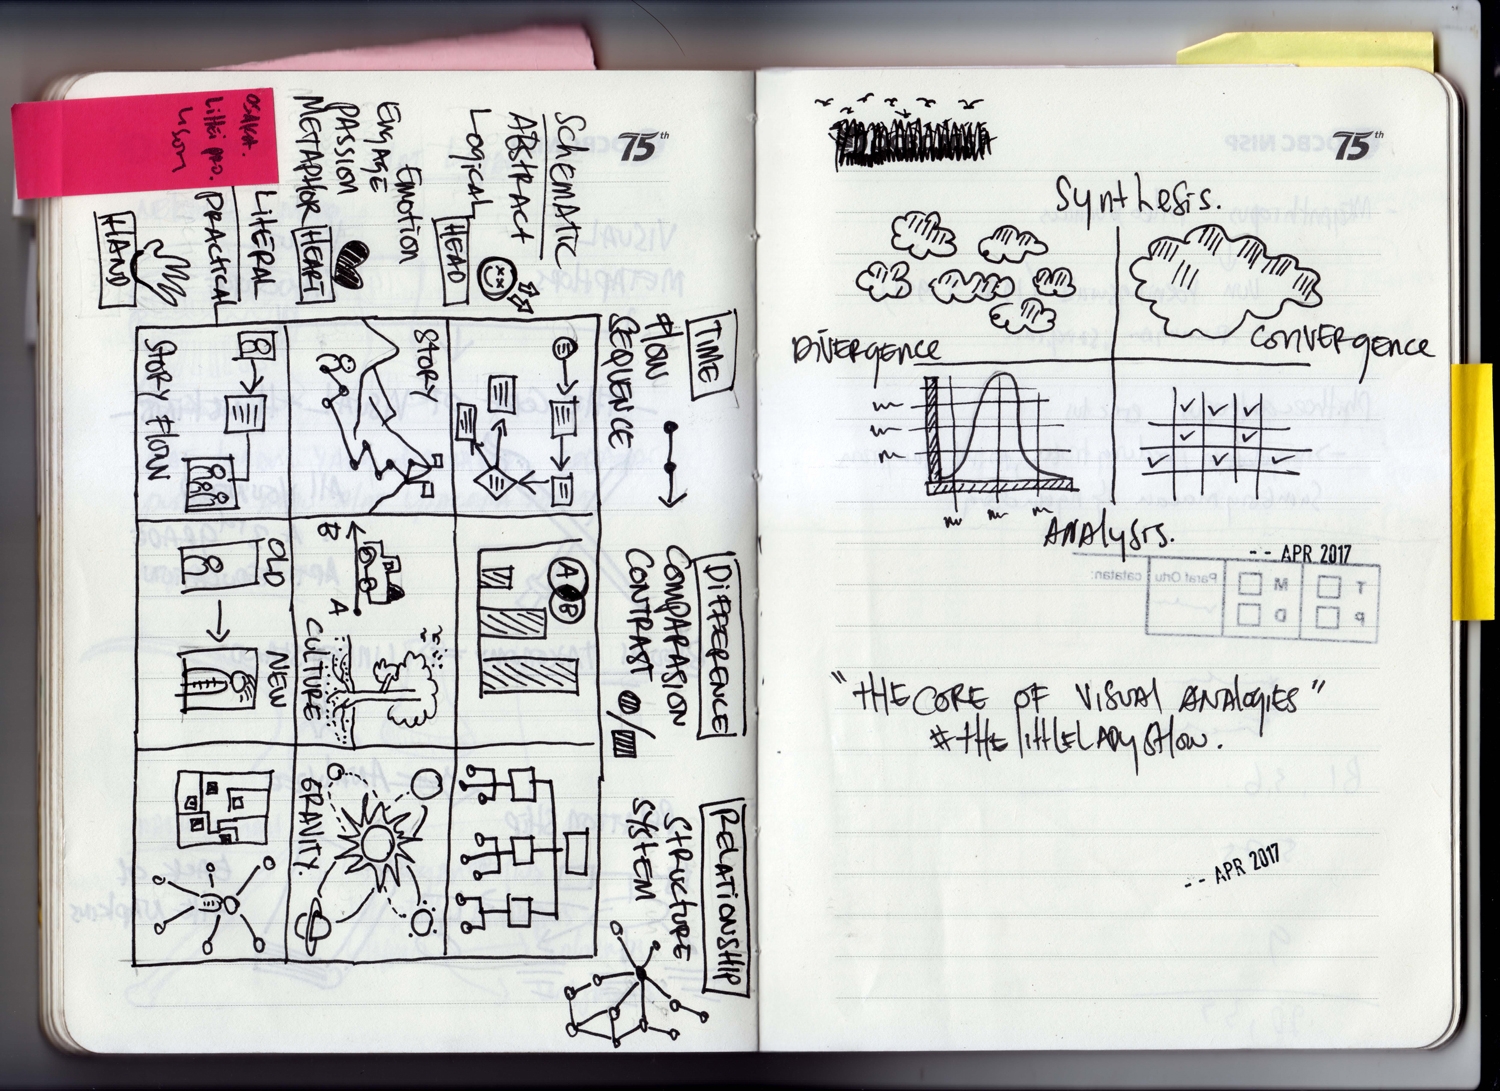 TIME
FLOW
SEQUENCE
DIFFERENCE
COMPARASION
CONTRAST
RELATIONSHIP
STRUCTURE
SYSTEM
SCHEMATIC
ABSTRACT
LOGICAL
HEAD
A
B
EMOTION
ENGAGE
PASSION
METAPHOR
HEART
STORY
A
B
CULTURE
GRAVITY.
LITERAL
PRACTICAL
HAND
STORY FLOW
OLD
NEW
OSAKA.
75th
75th
Synthesis.
DIVERGENCE
CONVERGENCE
ANALYSIS.
-- APR 2017
T M Paraf Ortu catatan:
P D
"THE CORE OF VISUAL ANALOGIES"
#THE lIttLELADYSHOW.
-- APR 2017